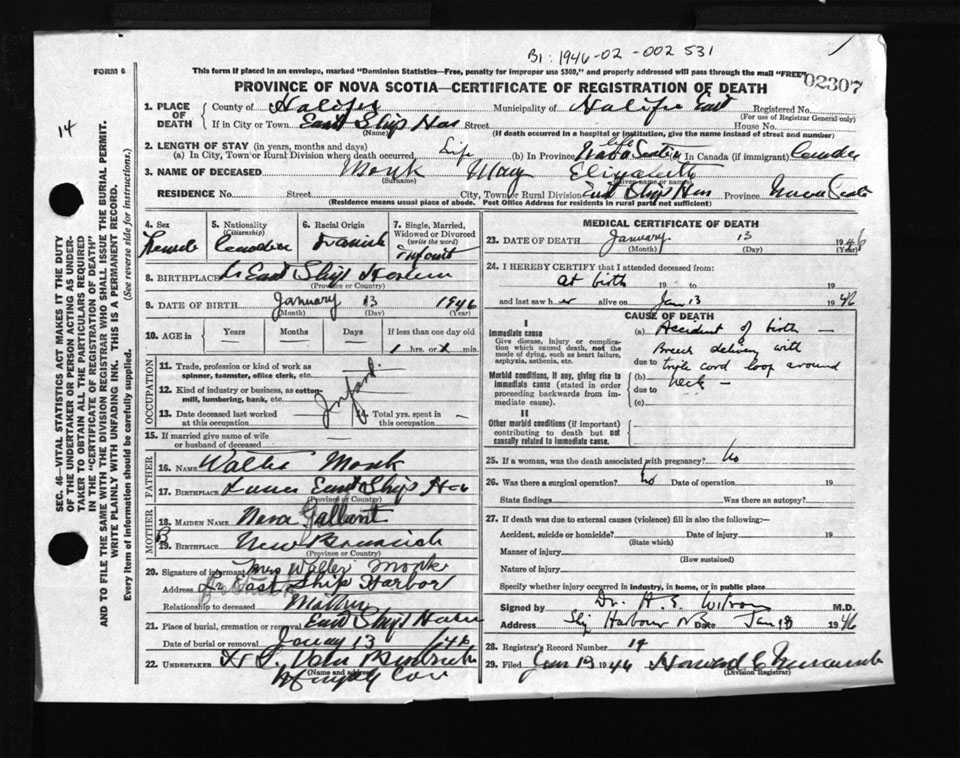 B1: 1946-02-002531
FORM 6
This form if placed in an envelope, marked "Dominion Statistics—Free, penalty for improper use $300," and properly addressed will pass through the mail "FREE"
02307
PROVINCE OF NOVA SCOTIA—CERTIFICATE OF REGISTRATION OF DEATH
14
SEC. 46—VITAL STATISTICS ACT MAKES IT THE DUTY
OF THE UNDERTAKER OR PERSON ACTING AS UNDER-
TAKER TO OBTAIN ALL THE PARTICULARS REQUIRED
IN THE "CERTIFICATE OF REGISTRATION OF DEATH"
AND TO FILE THE SAME WITH THE DIVISION REGISTRAR WHO SHALL ISSUE THE BURIAL PERMIT.
WRITE PLAINLY WITH UNFADING INK. THIS IS A PERMANENT RECORD.
Every item of Information should be carefully supplied. (See reverse side for instructions.)
1. PLACE OF DEATH County of Halifax Municipality of Halifax East Registered No.
(For use of Registrar General only)
If in City or Town East Ship Har Street House No.
(Name) (If death occurred in a hospital or institution, give the name instead of street and number)
2. LENGTH OF STAY (in years, months and days)
(a) In City, Town or Rural Division where death occurred Life (b) In Province life Nova Scotia In Canada (if immigrant)
3. NAME OF DECEASED Monk May Elizabeth
(Surname) (Given name or names)
RESIDENCE No. Street City, Town or Rural Division East Ship Har Province Nova Scotia
(Residence means usual place of abode. Post Office Address for residents in rural parts not sufficient)
4. Sex 5. Nationality (Citizenship) 6. Racial Origin 7. Single, Married, Widowed or Divorced (write the word)
Female Canadian infant
8. BIRTHPLACE East Ship Harbour
(Province or Country)
9. DATE OF BIRTH January 13 1946
(Month) (Day) (Year)
10. AGE in Years Months Days If less than one day old
1 hrs. or min.
OCCUPATION
11. Trade, profession or kind of work as spinner, teamster, office clerk, etc.
12. Kind of industry or business, as cotton-mill, lumbering, bank, etc.
Infant
13. Date deceased last worked at this occupation 14. Total yrs. spent in this occupation
15. If married give name of wife or husband of deceased
FATHER
16. NAME Walter Monk
17. BIRTHPLACE East Ship Har
(Province or Country)
MOTHER
18. MAIDEN NAME Nora Gallant
19. BIRTHPLACE New Brunswick
(Province or Country)
20. Signature of informant Mrs Walter Monk
Address East Ship Harbor
Relationship to deceased Mother
21. Place of burial, cremation or removal East Ship Harbour
Date of burial or removal January 13 1946
22. UNDERTAKER
(Name and address)
MEDICAL CERTIFICATE OF DEATH
23. DATE OF DEATH January 13 1946
(Month) (Day) (Year)
24. I HEREBY CERTIFY that I attended deceased from:
at birth 19 to 19
and last saw her alive on Jan 13 1946
CAUSE OF DEATH
I
Immediate cause (a) Accident of birth —
Give disease, injury or complication which caused death, not the mode of dying, such as heart failure, asphyxia, asthenia, etc.
Breech delivery with
due to triple cord loop around
Morbid conditions, if any, giving rise to immediate cause (stated in order proceeding backwards from immediate cause).
(b) neck —
due to
(c)
II
Other morbid conditions (if important) contributing to death but not causally related to immediate cause.
25. If a woman, was the death associated with pregnancy? No
26. Was there a surgical operation? No Date of operation 19
State findings Was there an autopsy?
27. If death was due to external causes (violence) fill in also the following:—
Accident, suicide or homicide? Date of injury 19
(State which)
Manner of injury
(How sustained)
Nature of injury
Specify whether injury occurred in industry, in home, or in public place
Signed by Dr. H. S. Wilson M.D.
Address Ship Harbour NS Date Jan 18 1946
28. Registrar's Record Number 14
29. Filed Jan 13 1946 Howard
(Division Registrar)